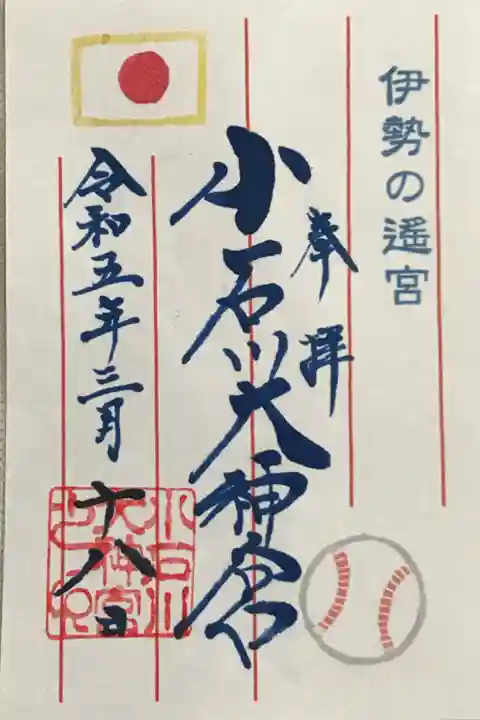 伊勢の遥宮
奉拝
小石川大神宮
令和五年三月
十八日
小石川
大神宮